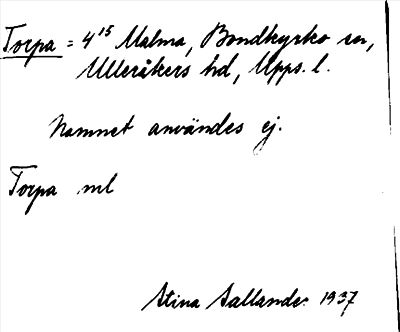 Torpa = 4¹⁵ Malma, Bondkyrko sn,
Ulleråkers hd, Upps. l.
Namnet användes ej.
Torpa ml
Stina Sallander 1937